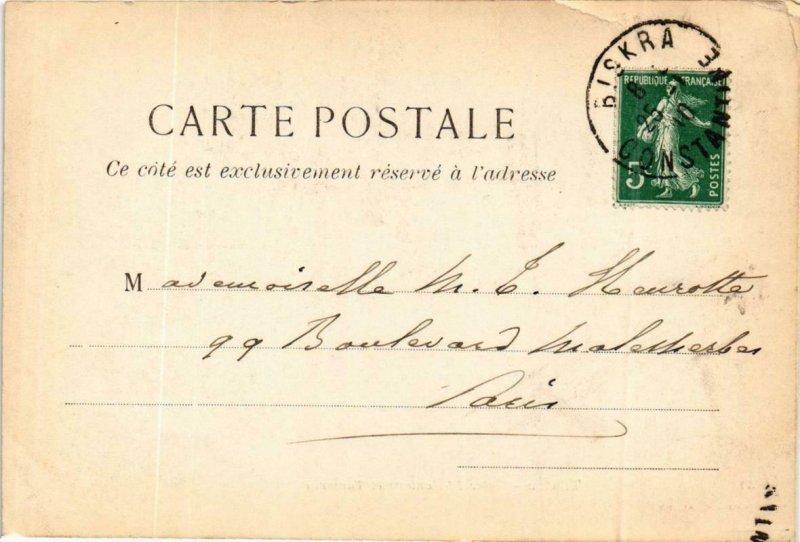 BISKRA
CONSTANTINE
REPUBLIQUE FRANÇAISE
5
POSTES
CARTE POSTALE
Ce côté est exclusivement réservé à l'adresse
Mademoiselle M. T. Heurotte
99 Boulevard Malesherbes
Paris